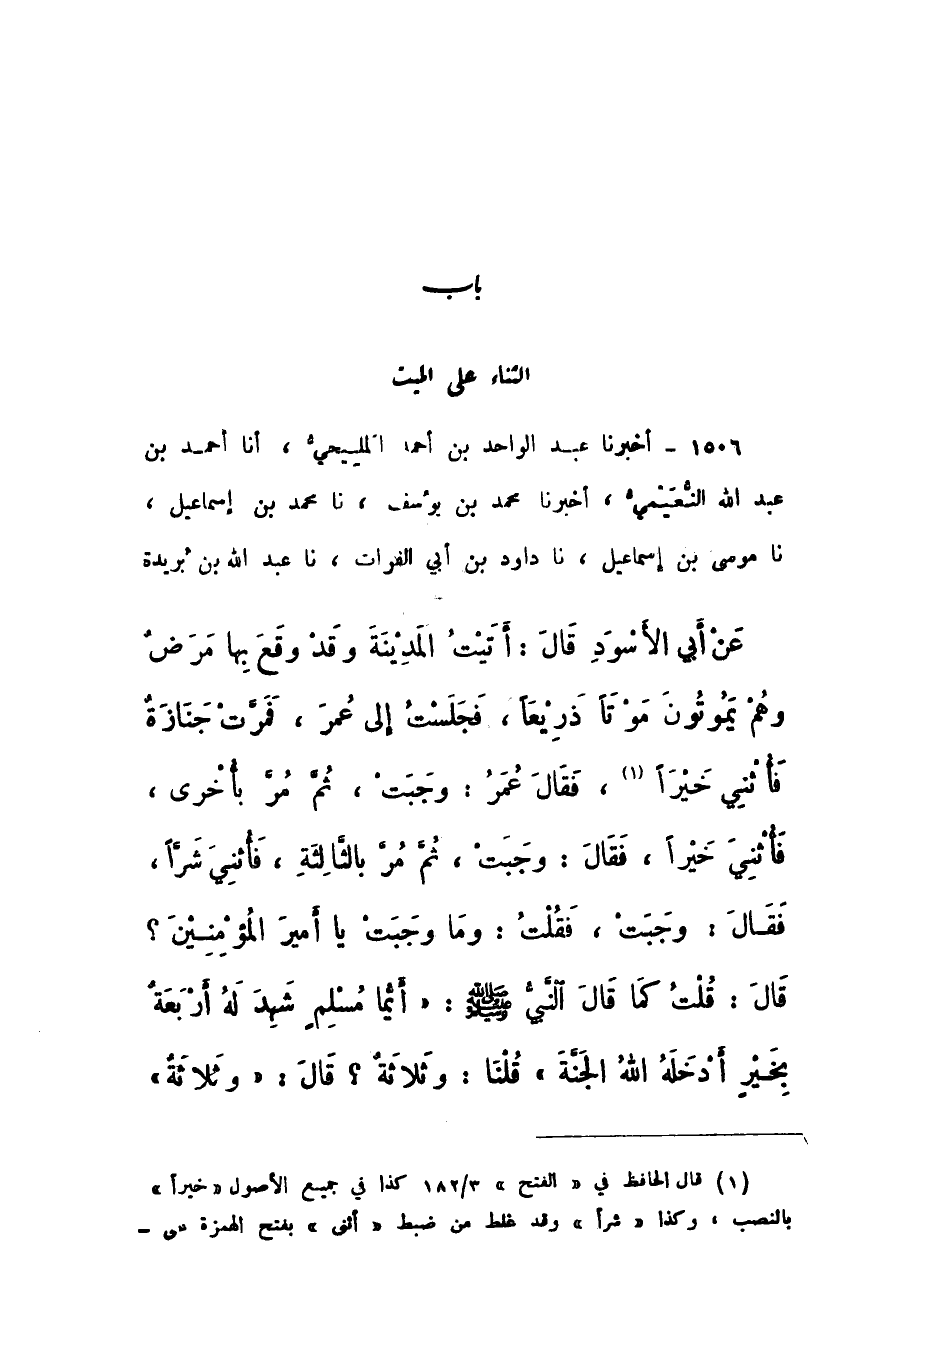 باب
الثناء على الميت
١٥٠٦ – أخبرنا عبد الواحد بن أحمد المليحيُّ ، أنا أحمد بن
عبد الله النُّعَيْميُّ ، أخبرنا محمد بن يوُسف ، نا محمد بن إسماعيل ،
نا موسى بن إسماعيل ، نا داود بن أبي الفرات ، نا عبد الله بن بُريدة
عَنْ أَبي الأَسْوَدِ قَالَ : أَتَيْتُ المَدِيْنَةَ وَقَدْ وقَعَ بِها مَرَضٌ
وهُمْ يَمُوتُونَ مَوْتَاً ذَرِيْعَاً ، فَجَلَسْتُ إلى عُمرَ ، فَمَرَّتْ جَنَازَةٌ
فَأُثْنِي خَيْرَاً (١) ، فَقَالَ عُمَرُ : وجَبَتْ ، ثُمَّ مُرَّ بأُخْرى ،
فَأُثْنِيَ خَيْراً ، فَقَالَ : وجَبَتْ ، ثُمَّ مُرَّ بالثَّالِثَةِ ، فَأُثنِيَ شَرَّاً ،
فَقَـالَ : وجَبَتْ ، فَقُلْتُ : ومَا وجَبَتْ يا أَميرَ المُؤمِنِـيْنَ ؟
قَالَ : قُلْتُ كمَا قَالَ النَّبيُّ ﷺ : « أَيُّما مُسْلِمٍ شَهِدَ لَهُ أَرْبَعَةٌ
بِخَيْرٍ أَدْخَلَهُ اللهُ الجَنَّةَ » قُلْنَا : وثَلاثَةٌ ؟ قَالَ : « وثَلاثَةٌ »
(١) قال الحافظ في « الفتح » ١٨٢/٣ كذا في جميع الأصول « خيراً »
بالنصب ، وكذا « شراً » وقد غلط من ضبط « أثنى » بفتح الهمزة على –